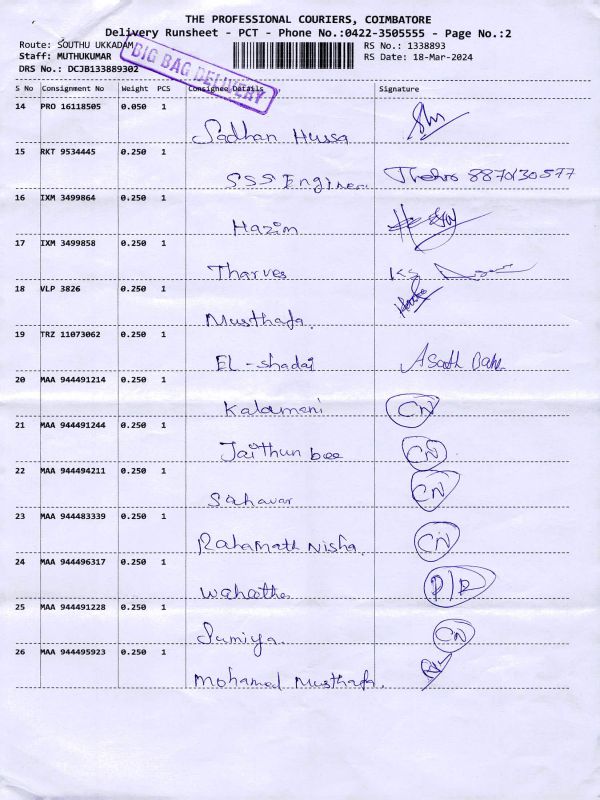 THE PROFESSIONAL COURIERS, COIMBATORE
Delivery Runsheet - PCT - Phone No.:0422-3505555 - Page No.:2
Route: SOUTHU UKKADAM
RS No.: 1338893
Staff: MUTHUKUMAR
RS Date: 18-Mar-2024
DRS No.: DCJB133889302
BIG BAG DELIVERY
S No Consignment No Weight PCS Consignee Details Signature
14 PRO 16118505 0.050 1
Sadhan Hussa
15 RKT 9534445 0.250 1
SSS Engineer 8870130577
16 IXM 3499864 0.250 1
Hazim
17 IXM 3499858 0.250 1
Tharves
18 VLP 3826 0.250 1
Musthafa.
19 TRZ 11073062 0.250 1
EL-shadai
20 MAA 944491214 0.250 1
Kalameni CN
21 MAA 944491244 0.250 1
Jaithun bee CN
22 MAA 944494211 0.250 1
Sahavar CN
23 MAA 944483339 0.250 1
Rahamath Nisha. CN
24 MAA 944496317 0.250 1
Wahaths
25 MAA 944491228 0.250 1
Sumiya. CN
26 MAA 944495923 0.250 1
Mohamed Musthafa.